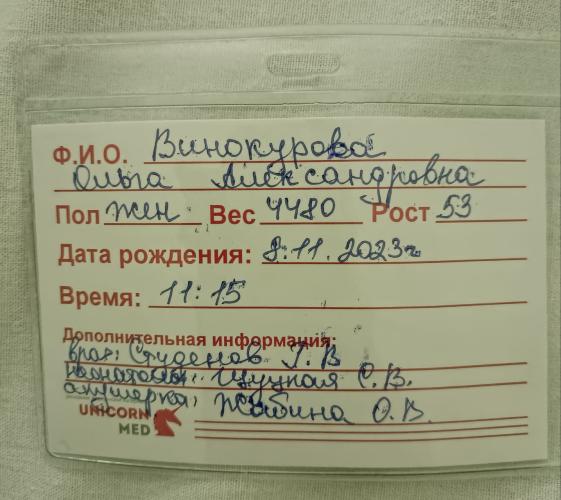 Ф.И.О. Винокурова
Ольга Александровна
Пол жен Вес 4480 Рост 53
Дата рождения: 8.11.2023г
Время: 11:15
Дополнительная информация:
врач: Студенов Г. В
неонатолог: Щуцкая С. В.
акушерка: Жабина О. В.
UNICORN
MED